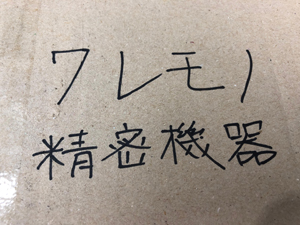 ワレモノ
精密機器